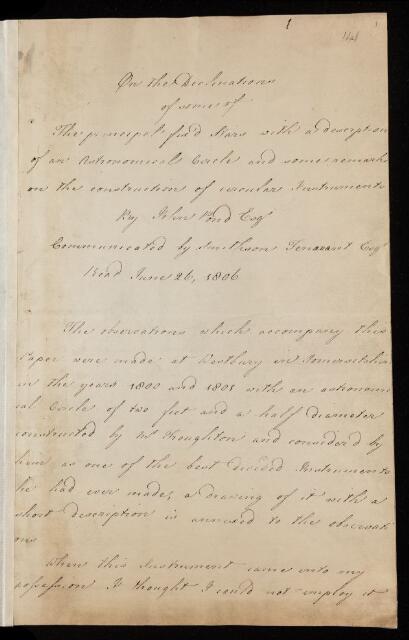 1
On the Declinations
of some of
The principal fix'd Stars with a description
of an Astronomical Circle and some remarks
on the construction of circular Instruments
By John Pond Esqr
Communicated by Smithson Tennant Esqr
Read June 26, 1806
The observations which accompany this
Paper were made at Westbury in Somersetshire
in the years 1800 and 1801 with an astronomi
cal Circle of two feet and a half diameter
constructed by Mr Troughton and considered by
him as one of the best divided Instruments
he had ever made, a drawing of it with a
short description is annexed to the observati
ons
When this Instrument came into my
possession I thought I could not employ it